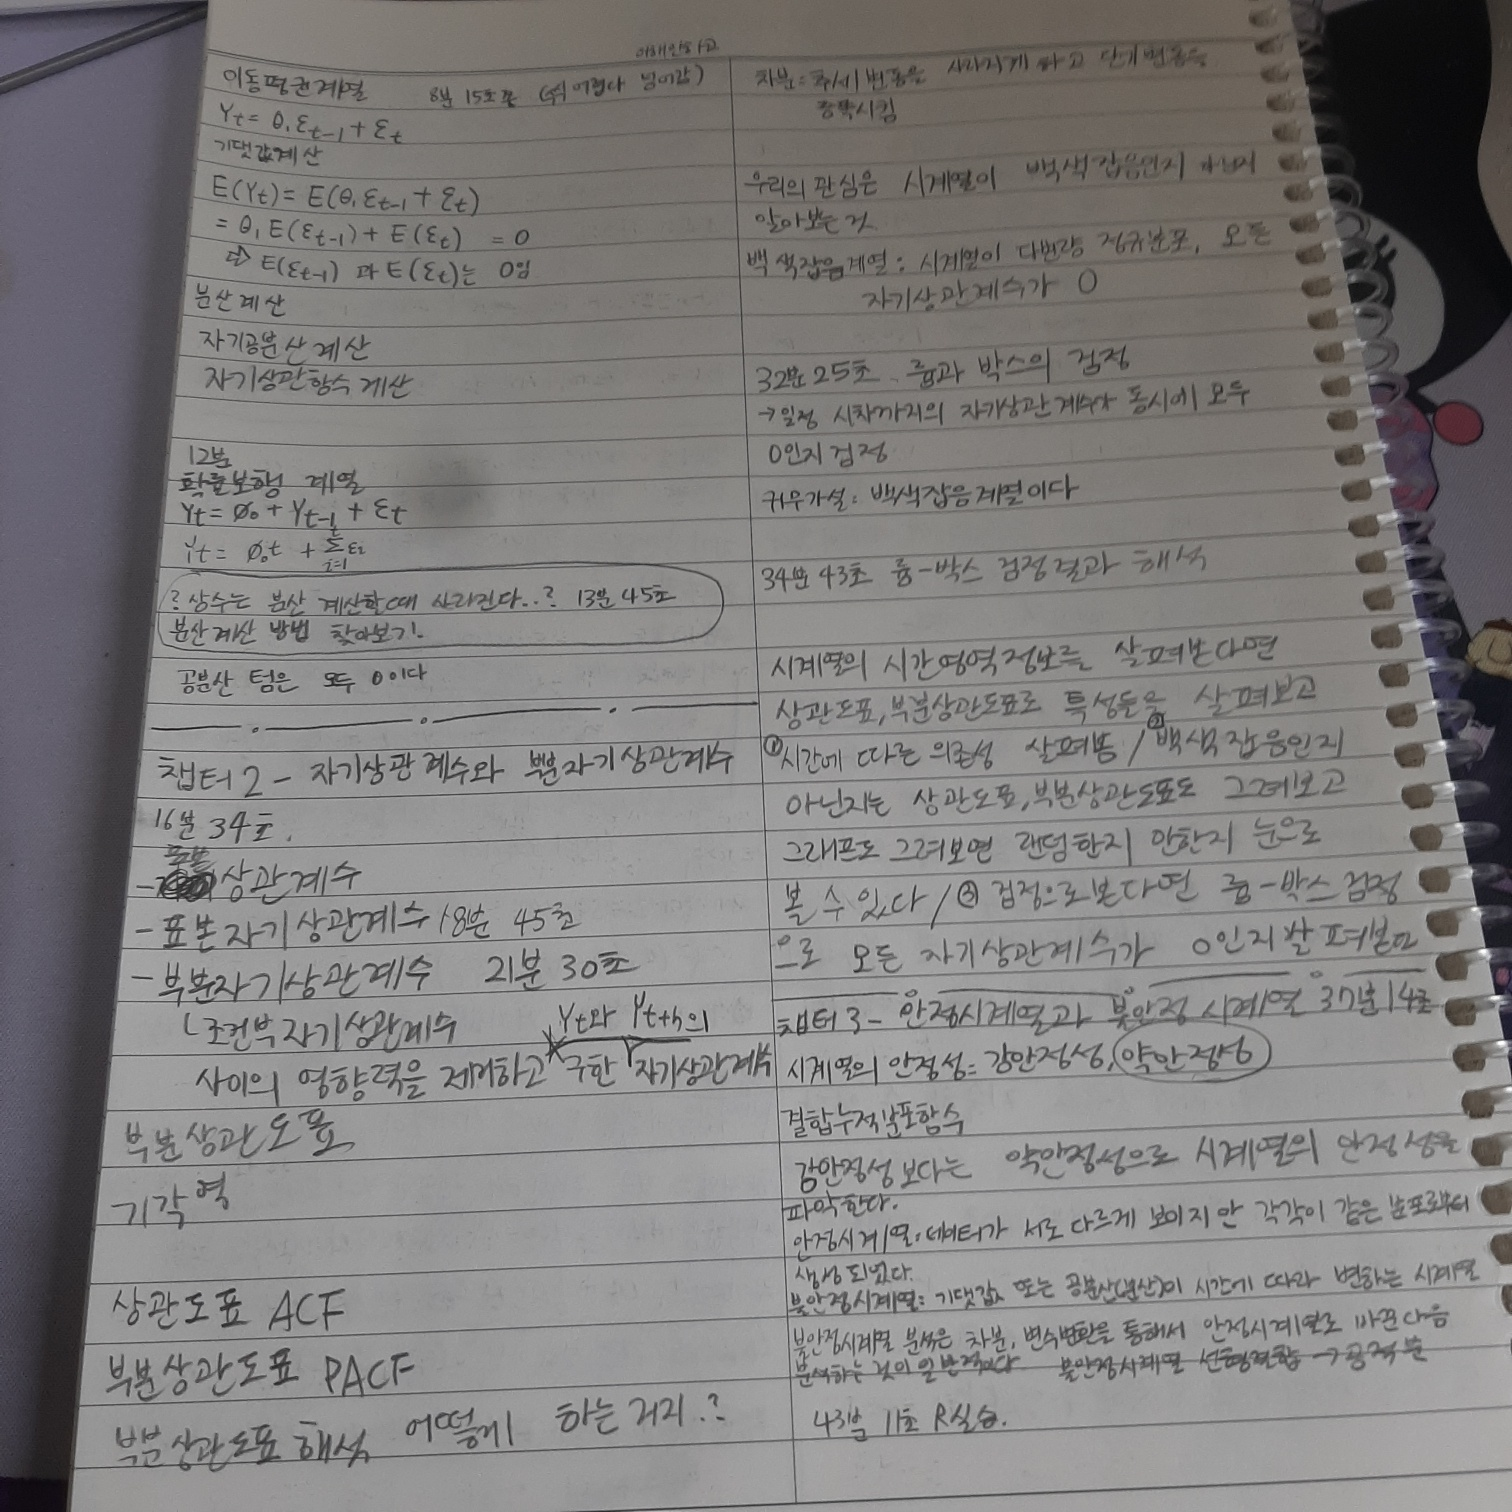 이해안하고
이동평균계열 8분 15초쯤 (쉬 어렵다 넘어감)
Yt = θ₁εt-1 + εt
기댓값계산
E(Yt) = E(θ₁εt-1 + εt)
= θ₁E(εt-1) + E(εt) = 0
⇒ E(εt-1) 과 E(εt)는 0임
분산계산
자기공분산계산
자기상관함수계산
12분
확률보행 계열
Yt = ø₀ + Yt-1 + εt
Yt = ø₀t + Σεi
i=1
? 상수는 분산 계산할때 사라진다..? 13분 45초
분산계산 방법 찾아보기!
공분산 텀은 모두 0이다
챕터2 - 자기상관계수와 부분자기상관계수
16분 34초.
표본
- 상관계수
- 표본자기상관계수 18분 45초
- 부분자기상관계수 21분 30초
└조건부자기상관계수 Yt와 Yt+h의
사이의 영향력을 제거하고 구한 자기상관계수
부분상관도표
기각역
상관도표 ACF
부분상관도표 PACF
부분상관도표 해석 어떻게 하는거지.?
차분: 추세변동을 사라지게 하고 단기변동을
증폭시킴
우리의 관심은 시계열이 백색잡음인지 아닌지
알아보는 것
백색잡음계열: 시계열이 다변량 정규분포, 모든
자기상관계수가 0
32분 25초. 륭과 박스의 검정
→일정 시차까지의 자기상관계수가 동시에 모두
0인지 검정
귀무가설: 백색잡음계열이다
34분 43초 륭-박스 검정결과 해석
시계열의 시간영역정보를 살펴본다면
상관도표, 부분상관도표로 특성들을 살펴보고
①시간에 따른 의존성 살펴봄 / ②백색잡음인지
아닌지는 상관도표, 부분상관도표도 그려보고
그래프도 그려보면 랜덤한지 안한지 눈으로
볼 수 있다 / 검정으로 본다면 륭-박스검정
으로 모든 자기상관계수가 0인지 살펴본다
챕터3 - 안정시계열과 불안정 시계열 37분 14초
시계열의 안정성: 강안정성, 약안정성
결합누적분포함수
강안정성보다는 약안정성으로 시계열의 안정성을
파악한다.
안정시계열: 데이터가 서로 다르게 보이지만 각각이 같은 분포로부터
생성되었다.
불안정시계열: 기댓값, 또는 공분산(분산)이 시간에 따라 변하는 시계열
불안정시계열 분석은 차분, 변수변환을 통해서 안정시계열로 바꾼다음
분석하는 것이 일반적이다 불안정시계열 선형결합 → 공적분
43분 11초 R실습.